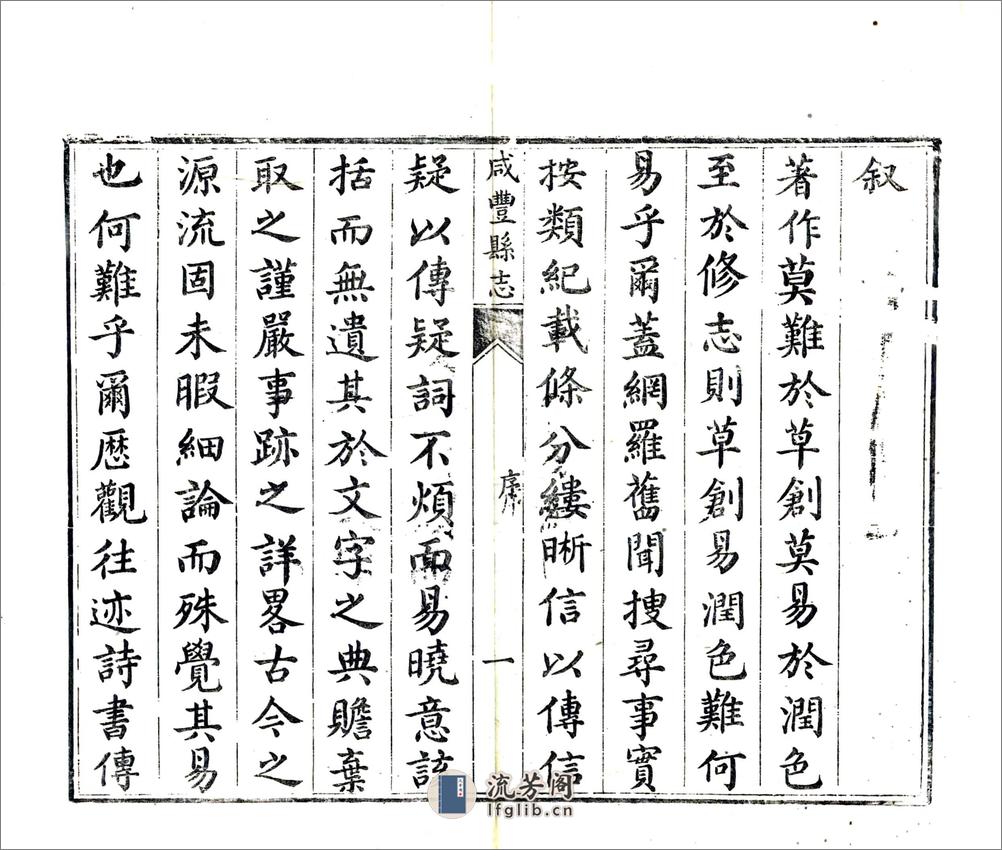 叙
著作莫難於草創莫易於潤色
至於修志則草創易潤色難何
易乎爾蓋網羅舊聞搜尋事實
按類紀載條分縷晰信以傳信
咸豐縣志
序
一
疑以傳疑詞不煩而易曉意該
括而無遺其於文字之典贍棄
取之謹嚴事跡之詳畧古今之
源流固未暇細論而殊覺其易
也何難乎爾歷觀往迹詩書傳
流芳阁
lfglib.cn